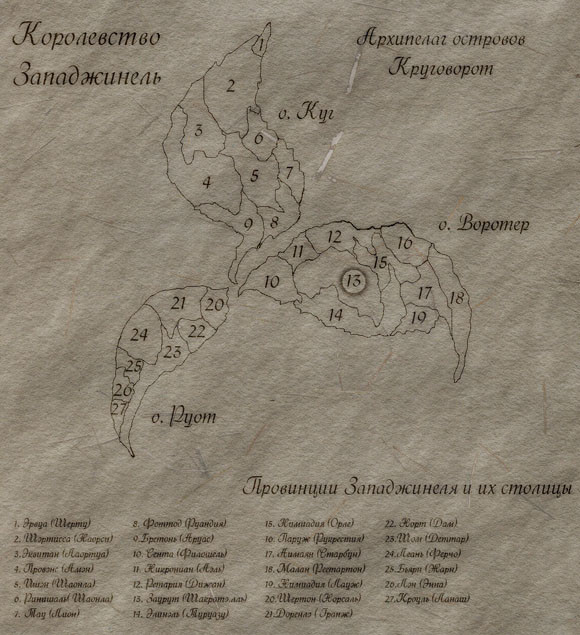 Королевство
Западжинель
Архипелаг островов
Круговорот
о. Куг
о. Воротер
о. Руот
1
2
3
4
5
6
7
8
9
10
11
12
13
14
15
16
17
18
19
20
21
22
23
24
25
26
27
Провинции Западжинеля и их столицы
1. Эрвуа (Шерту)
2. Шэртисса (Наорси)
3. Эквитан (Лаортуа)
4. Провэнс (Амэн)
5. (Шаонла)
6. Ринишали (Шаонла)
7. Тау (Лион)
8. Фоттод (Руандия)
9. Бротонь (Аруас)
10. Сента (Филошель)
11. Никрониан (Аэль)
12. Ретария (Дижан)
13. Заурут (Шакротэлль)
14. Элинэль (Туруазу)
15. (Орле)
16. Паруж (Рукрестия)
17. Аимаян (Старбун)
18. Малан (Рестартон)
19. (Лауж)
20. Шертон (Корсаль)
21. Доргенлэ (Гранж)
22. Норт (Дам)
23. Шон (Деттар)
24. Леань (Ферчо)
25. Бьярн (Жарн)
26. Лэн (Энпа)
27. Кроуль (Ланаш)